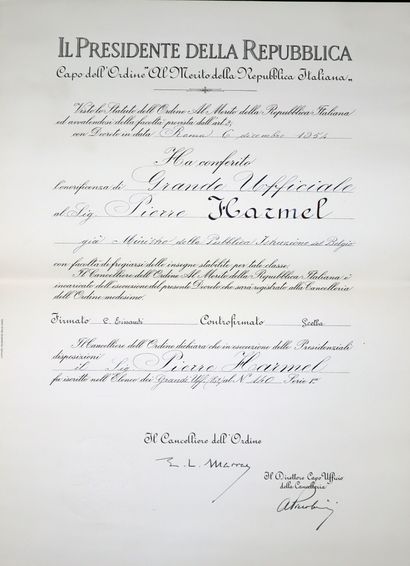 IL PRESIDENTE DELLA REPUBBLICA
Capo dell'Ordine "Al Merito della Repubblica Italiana„
Visto lo Statuto dell'Ordine Al Merito della Repubblica Italiana
ed avvalendosi della facoltà prevista dall'art. 2;
con Decreto in data Roma 6 dicembre 1954
Ha conferito
l'onorificenza di Grande Ufficiale
al Sig. Pierre Harmel
già Ministro della Pubblica Istruzione del Belgio
con facoltà di fregiarsi delle insegne stabilite per tale classe.
Il Cancelliere dell'Ordine Al Merito della Repubblica Italiana è
incaricato dell'esecuzione del presente Decreto che sarà registrato alla Cancelleria
dell'Ordine medesimo.
Firmato Einaudi Controfirmato Scelba
Il Cancelliere dell'Ordine dichiara che in esecuzione delle Presidenziali
disposizioni
il Sig Pierre Harmel
fu iscritto nell'Elenco dei Grandi Uff. al N° 140 Serie
Il Cancelliere dell'Ordine
Il Direttore Capo Ufficio
della Cancelleria